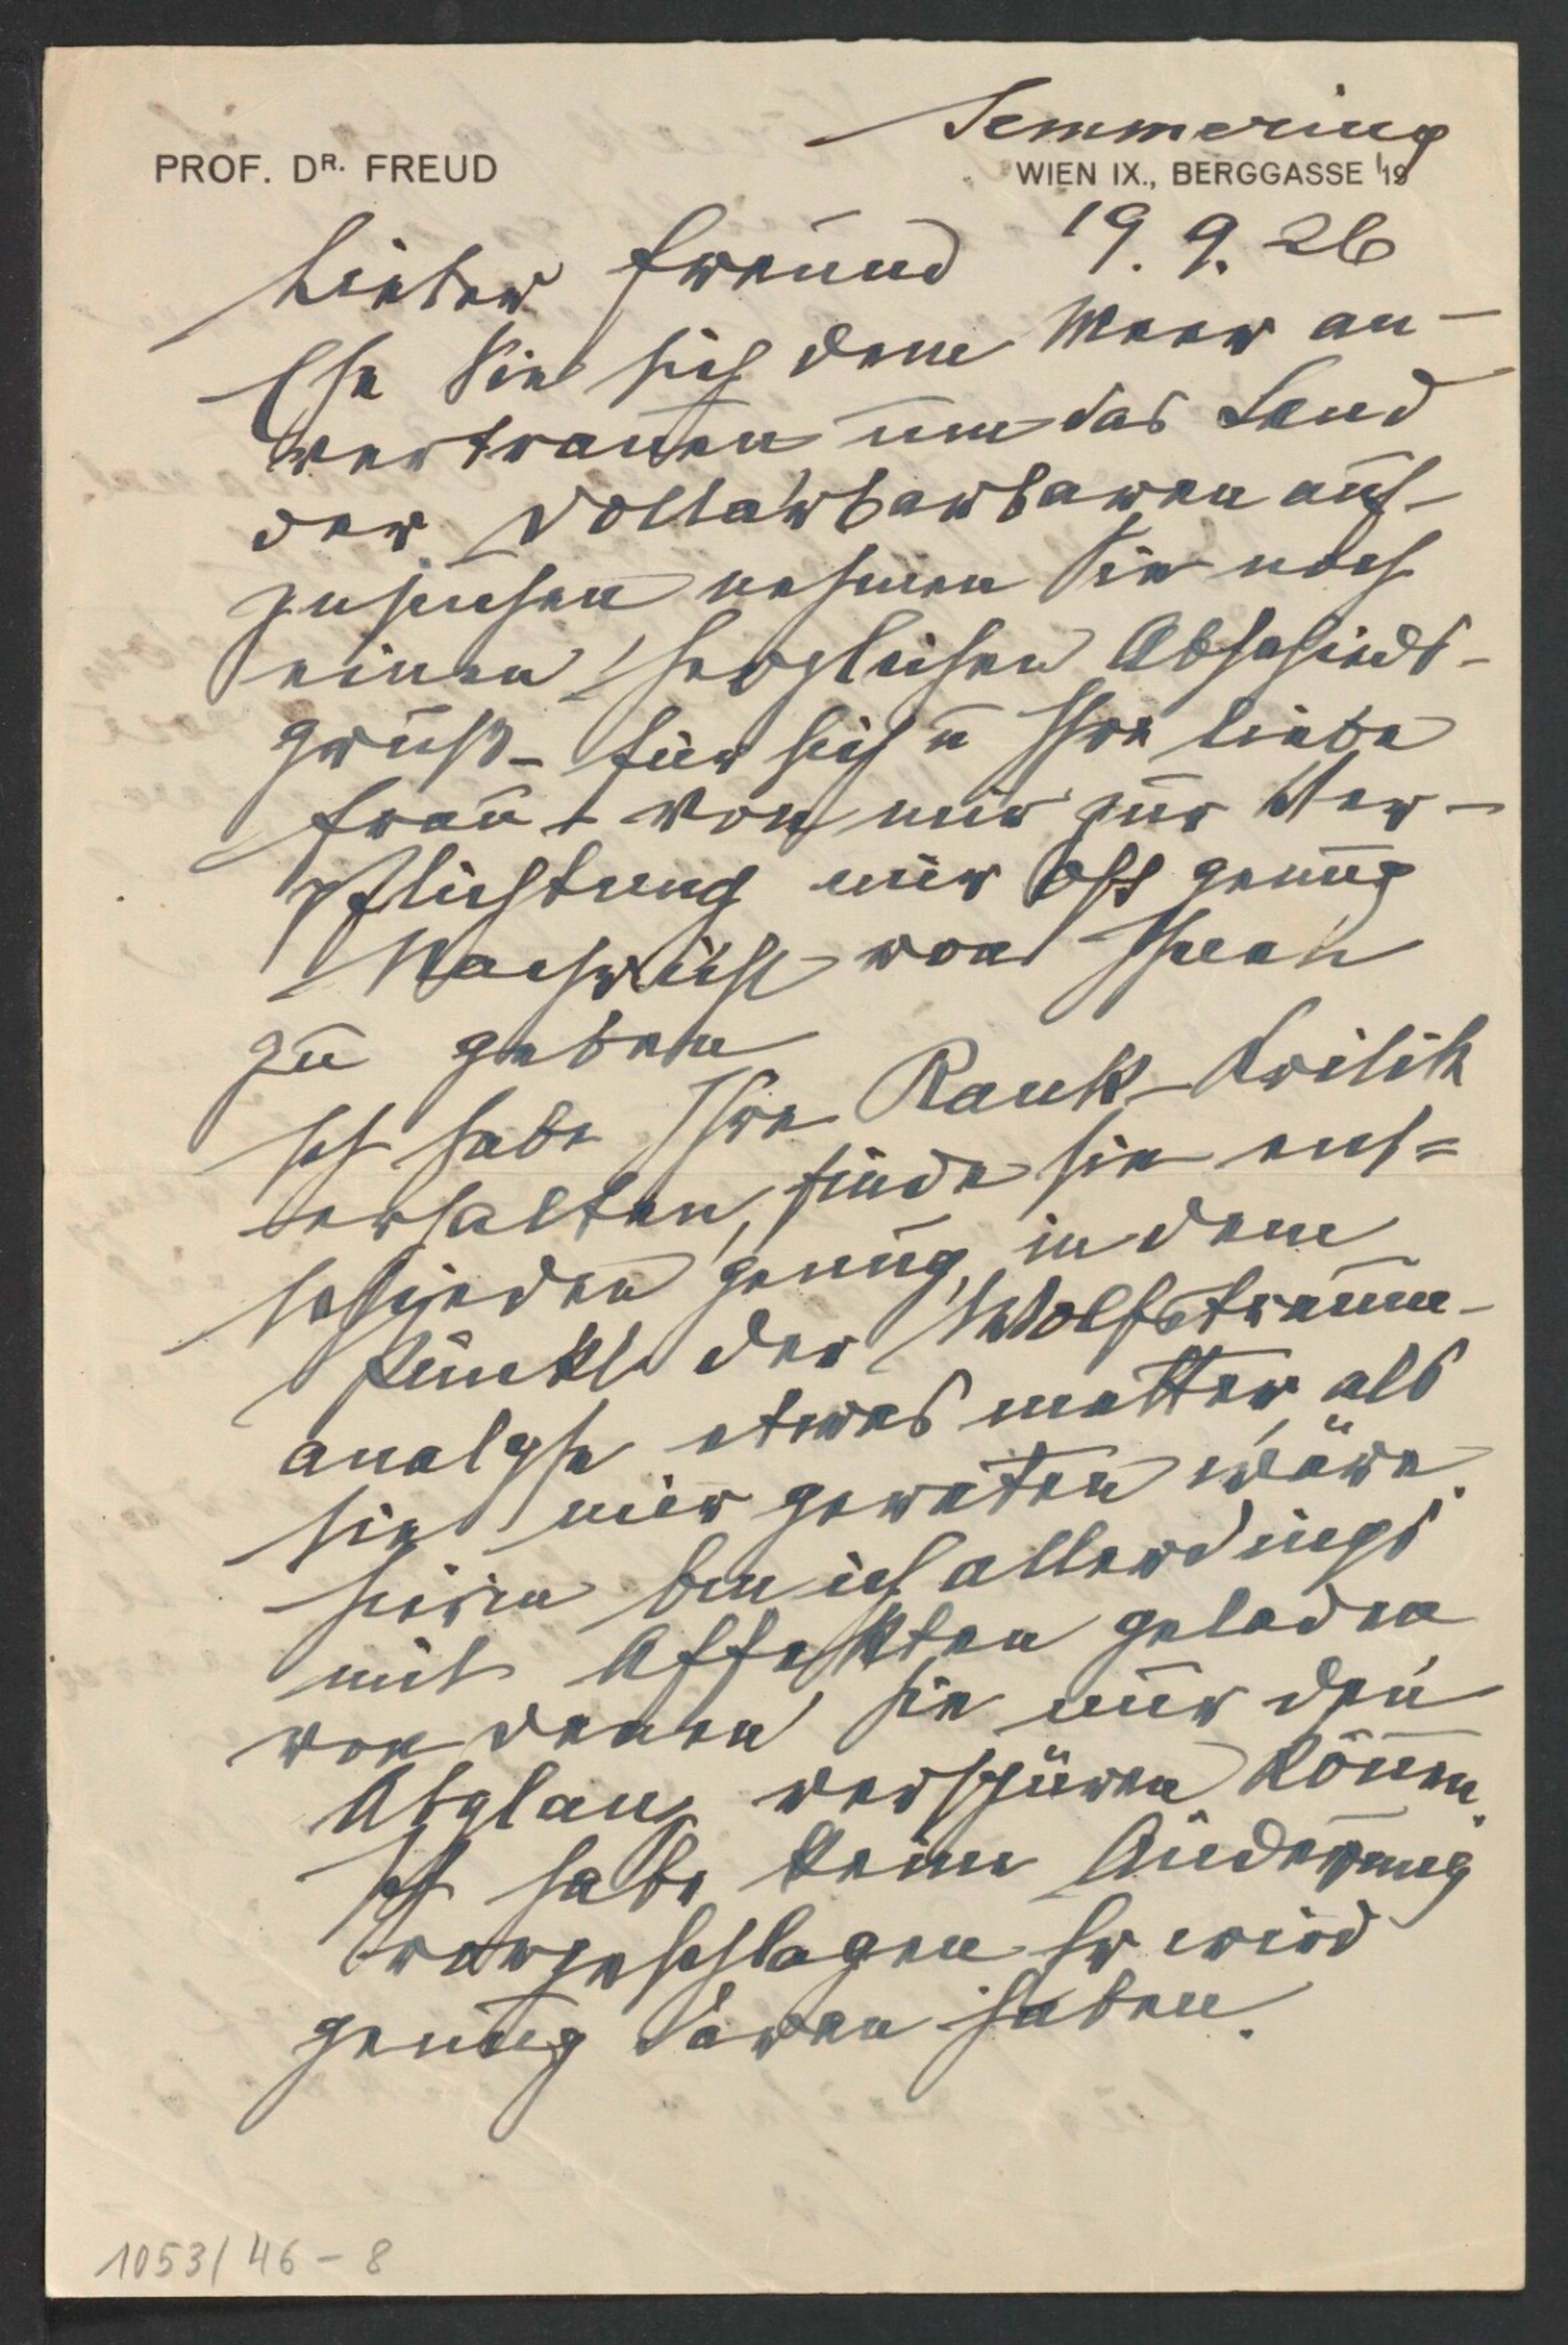 Semmering
PROF. DR. FREUD
WIEN IX., BERGGASSE 19
19. 9. 26
Lieber Freund
Ehe Sie sich dem Meer an-
vertrauen um das Land
der Dollarbarbaren auf-
zusuchen nehmen Sie noch
einen herzlichen Abschieds-
gruß für sich u Ihre liebe
Frau von mir zur Ver-
pflichtung mir oft genug
Nachricht von Ihnen
zu geben
Ich habe Ihre Rank-Kritik
erhalten, finde sie ent-
schieden genug, in dem
Punkt der Wolfstraum-
analyse etwas matter als
sie mir geraten wäre.
Hierin bin ich allerdings
mit Affekten geladen
von denen Sie nur den
Abglanz verspüren können.
Ich habe keine Änderung
vorgeschlagen. Er wird
genug daran haben.
1053/46-8